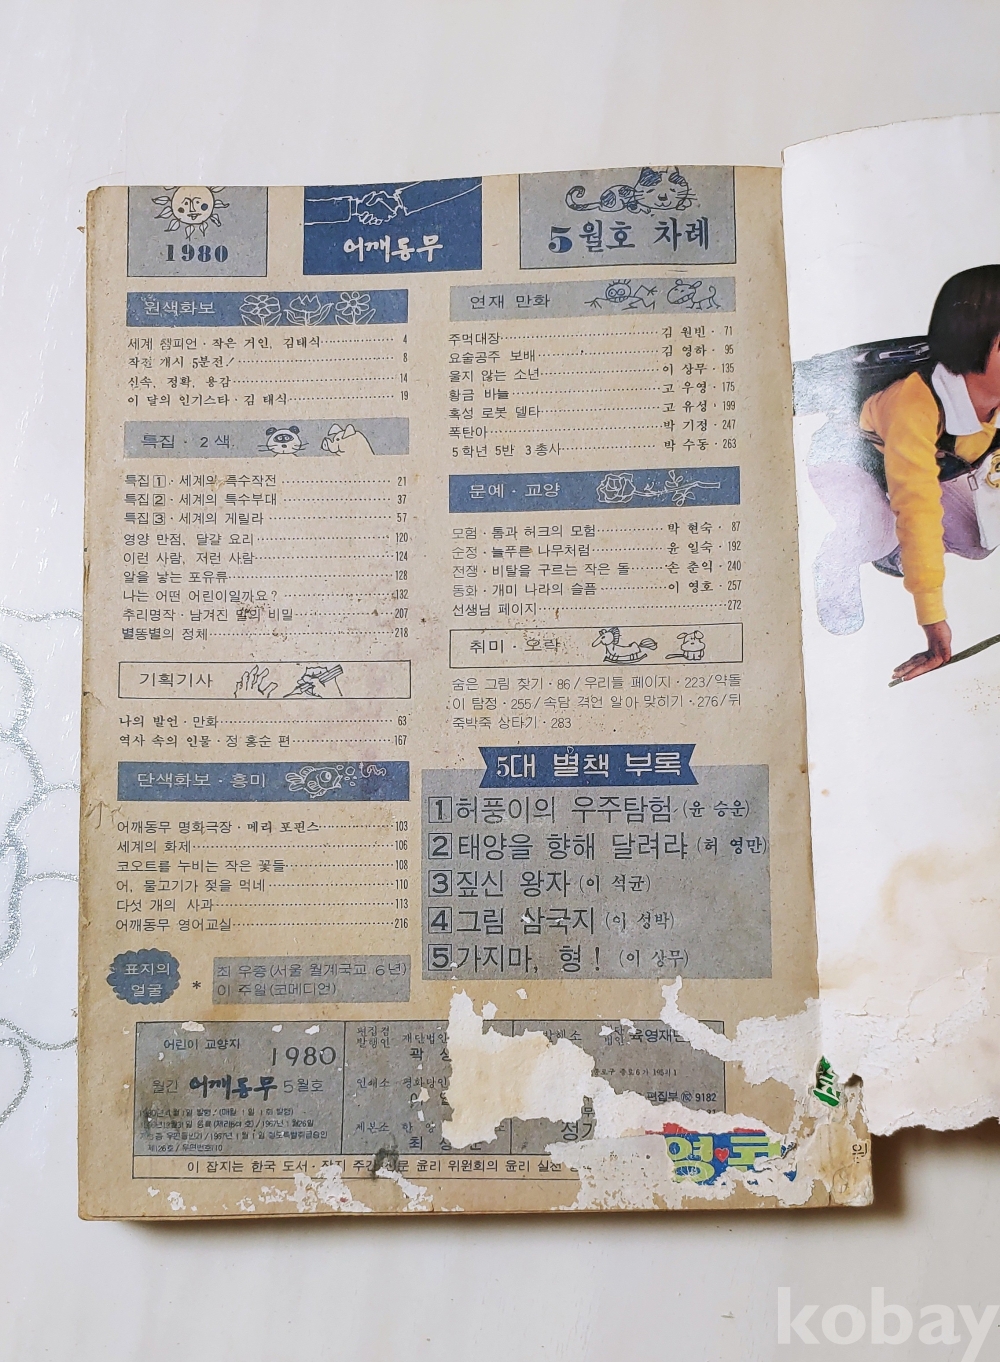 1980
어깨동무
5월호 차례
원색화보
세계 챔피언 · 작은 거인, 김태식 4
작전 개시 5분전! 8
신속, 정확, 용감 14
이 달의 인기스타 · 김 태식 19
특집 · 2색
특집 1 · 세계의 특수작전 21
특집 2 · 세계의 특수부대 37
특집 3 · 세계의 게릴라 57
영양 만점, 달걀 요리 120
이런 사람, 저런 사람 124
알을 낳는 포유류 128
나는 어떤 어린이일까요? 132
추리명작 · 남겨진 말의 비밀 207
별똥별의 정체 218
기획기사
나의 발언 · 만화 63
역사 속의 인물 · 정 홍순 편 167
단색화보 · 흥미
어깨동무 명화극장 · 메리 포핀스 103
세계의 화제 106
코오트를 누비는 작은 꽃들 108
어, 물고기가 젖을 먹네 110
다섯 개의 사과 113
어깨동무 영어교실 216
표지의
얼굴
* 최 우증(서울 월계국교 6년)
이 주일(코메디언)
연재 만화
주먹대장 김 원빈 · 71
요술공주 보배 김 영하 · 95
울지 않는 소년 이 상무 · 135
황금 바늘 고 우영 · 175
혹성 로봇 델타 고 유성 · 199
폭탄아 박 기정 · 247
5학년 5반 3총사 박 수동 · 263
문예 · 교양
모험 · 톰과 허크의 모험 박 현숙 · 87
순정 · 늘푸른 나무처럼 윤 일숙 · 192
전쟁 · 비탈을 구르는 작은 돌 손 춘익 · 240
동화 · 개미 나라의 슬픔 이 영호 · 257
선생님 페이지 272
취미 · 오락
숨은 그림 찾기 · 86/우리들 페이지 · 223/약돌
이 탐정 · 255/속담 격언 알아 맞히기 · 276/뒤
죽박죽 상타기 · 283
5대 별책 부록
1 허풍이의 우주탐험 (윤 승운)
2 태양을 향해 달려라 (허 영만)
3 짚신 왕자 (이 석균)
4 그림 삼국지 (이 성박)
5 가지마, 형! (이 상무)
어린이 교양지 1980
월간 어깨동무 5월호
편집겸
발행인 재단법인
곽
인쇄소 평화당인
제본소 한
최
발행소
육영재단
편집부 9182
이 잡지는 한국 도서 · 잡지 주간신문 윤리 위원회의 윤리 실천
kobay